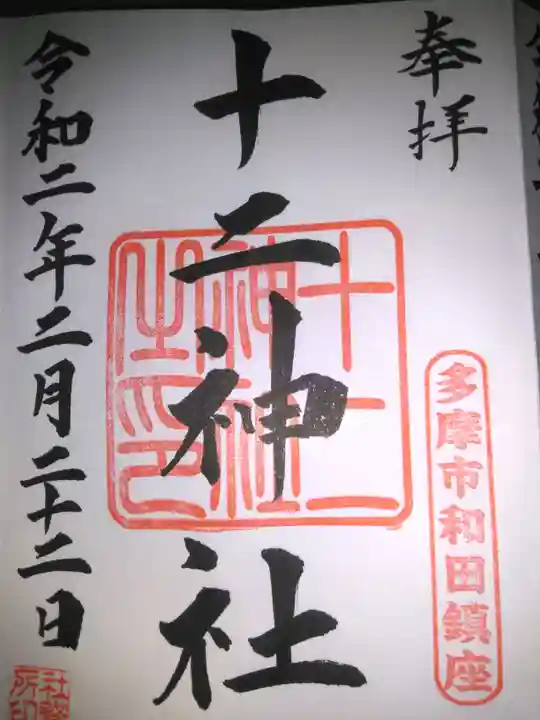 奉拝
多摩市和田鎮座
十二神社
十二
神社
之印
令和二年二月二十二日
社務
所印